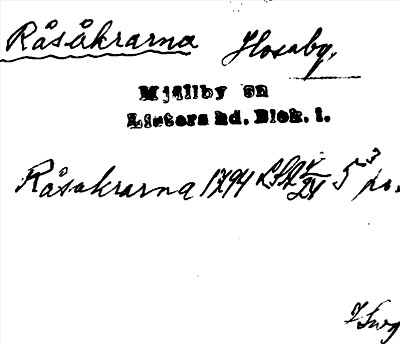 Råsåkrarna Hosaby.
Mjällby sn
Listers hd. Blek. l.
Råsakrarna 1794 5 3